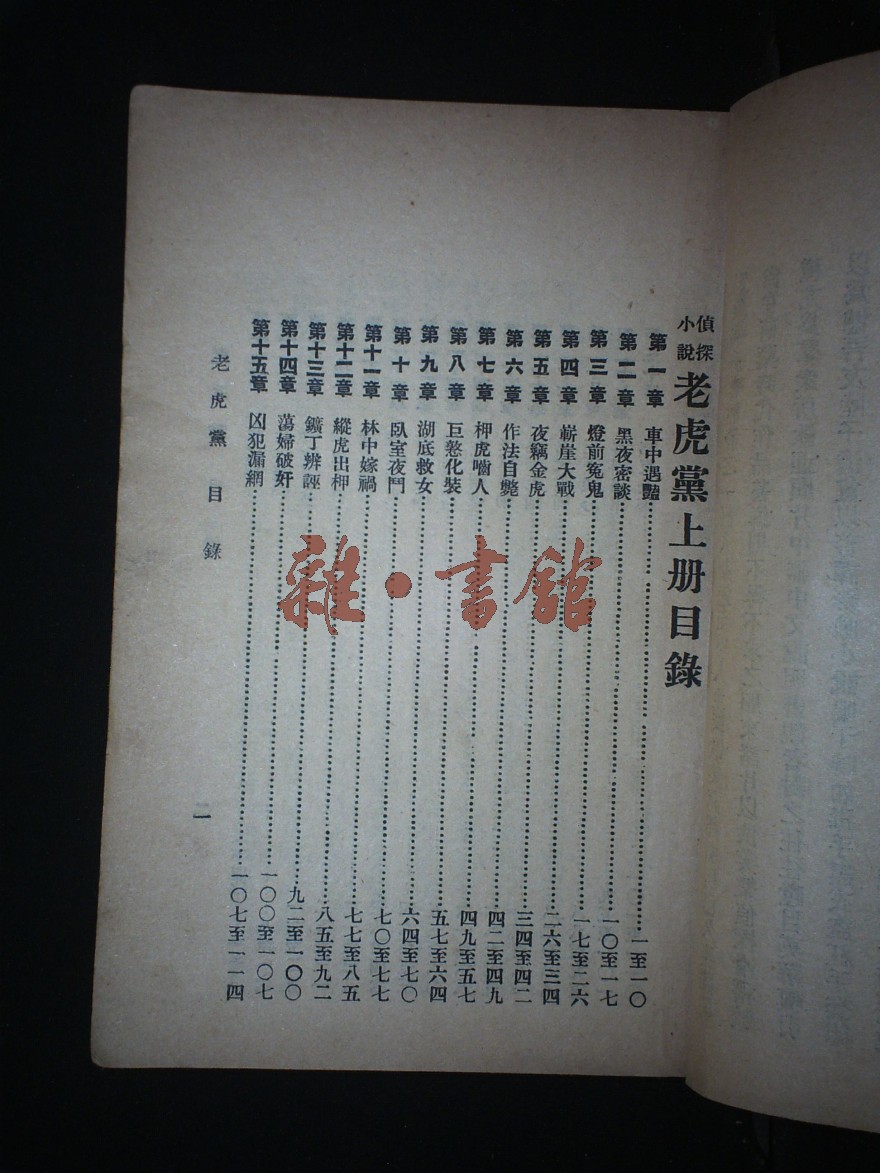 偵探小說 老虎黨上册目錄
第一章 車中遇豔……一至一〇
第二章 黑夜密談……一〇至一七
第三章 燈前冤鬼……一七至二六
第四章 嶄崖大戰……二六至三四
第五章 夜竊金虎……三四至四二
第六章 作法自斃……四二至四九
第七章 柙虎嚙人……四九至五七
第八章 巨憝化裝……五七至六四
第九章 湖底救女……六四至七〇
第十章 臥室夜鬥……七〇至七七
第十一章 林中嫁禍……七七至八五
第十二章 縱虎出柙……八五至九二
第十三章 鑛丁辨誣……九二至一〇〇
第十四章 蕩婦破奸……一〇〇至一〇七
第十五章 凶犯漏網……一〇七至一一四
老虎黨 目錄 二
雜·書館